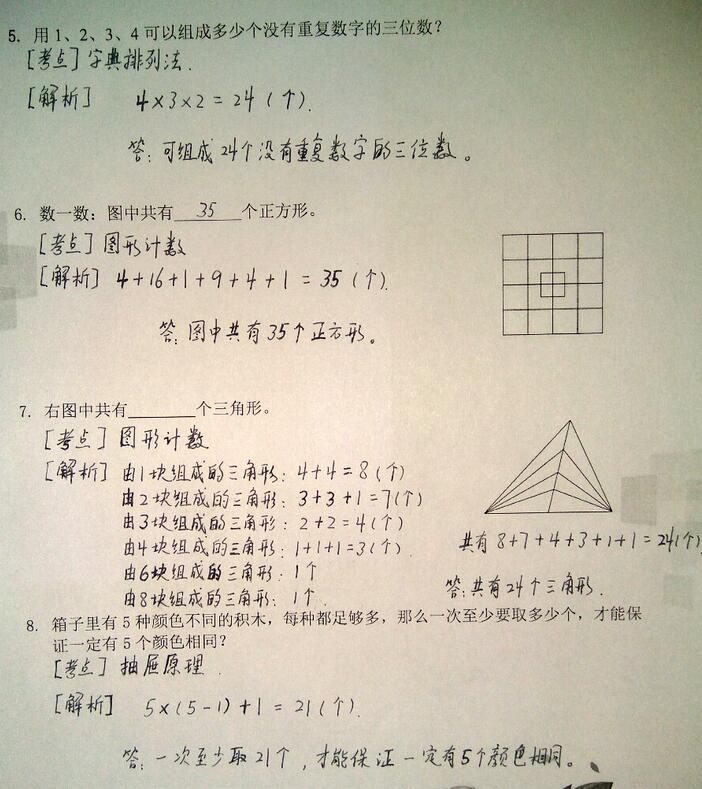 5. 用 1、2、3、4 可以组成多少个没有重复数字的三位数?
[考点] 字典排列法.
[解析] 4×3×2=24(个).
答:可组成24个没有重复数字的三位数。
6. 数一数:图中共有 35 个正方形。
[考点] 图形计数
[解析] 4+16+1+9+4+1=35(个).
答:图中共有35个正方形。
7. 右图中共有______个三角形。
[考点] 图形计数
[解析] 由1块组成的三角形:4+4=8(个)
由2块组成的三角形:3+3+1=7(个)
由3块组成的三角形:2+2=4(个)
由4块组成的三角形:1+1+1=3(个).
由6块组成的三角形:1个
由8块组成的三角形:1个.
共有 8+7+4+3+1+1=24(个)
答:共有24个三角形.
8. 箱子里有 5 种颜色不同的积木,每种都足够多,那么一次至少要取多少个,才能保
证一定有 5 个颜色相同?
[考点] 抽屉原理.
[解析] 5×(5-1)+1=21(个).
答:一次至少取21个,才能保证一定有5个颜色相同。